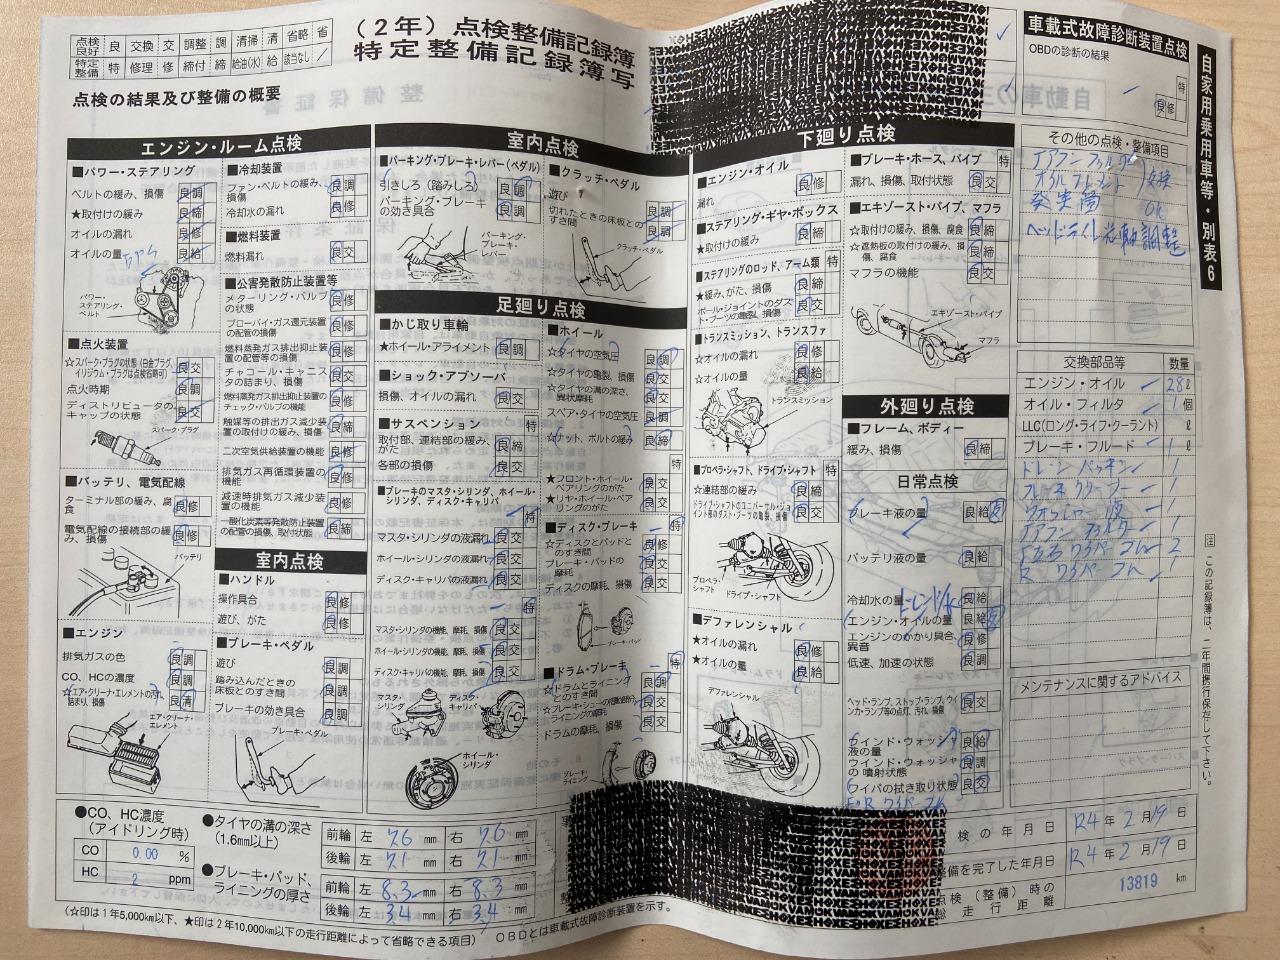 点検良好 良 交換 交 調整 調 清掃 清 省略 省
特定整備 特 修理 修 締付 締 給油(水) 給 該当なし ／
(2年) 点検整備記録簿
特定整備記録簿写
点検の結果及び整備の概要
車載式故障診断装置点検
OBDの診断の結果
特
良 修
自家用乗用車等・別表6
エンジン・ルーム点検
■パワー・ステアリング
ベルトの緩み、損傷 良 調
★取付けの緩み 良 締
オイルの漏れ 良 修
オイルの量 良 給
EPS
パワー・ステアリング・ベルト
■点火装置
☆スパーク・プラグの状態(白金プラグ、イリジウム・プラグは点検省略可) 良 交
点火時期 良 調
ディストリビュータのキャップの状態 良 交
スパーク・プラグ
■バッテリ、電気配線
ターミナル部の緩み、腐食 良 修
電気配線の接続部の緩み、損傷 良 修
バッテリ
■エンジン
排気ガスの色 良 調
CO、HCの濃度 良 調
☆エア・クリーナ・エレメントの汚れ、詰まり、損傷 良 清
エア・クリーナ・エレメント
■冷却装置
ファン・ベルトの緩み、損傷 良 調
冷却水の漏れ 良 修
■燃料装置
燃料漏れ 良 修
■公害発散防止装置等
メターリング・バルブの状態 良 修
ブローバイ・ガス還元装置の配管の損傷 良 修
燃料蒸発ガス排出抑止装置の配管等の損傷 良 修
チャコール・キャニスタの詰まり、損傷 良 交
燃料蒸発ガス排出抑止装置のチェック・バルブの機能 良 修
触媒等の排出ガス減少装置の取付けの緩み、損傷 良 修
二次空気供給装置の機能 良 修
排気ガス再循環装置の機能 良 修
減速時排気ガス減少装置の機能 良 修
一酸化炭素等発散防止装置の配管の損傷、取付状態 良 締
室内点検
■ハンドル
操作具合 良 修
遊び、がた 良 修
■ブレーキ・ペダル
遊び 良 調
踏み込んだときの床板とのすき間 良 調
ブレーキの効き具合 良 調
ブレーキ・ペダル
室内点検
■パーキング・ブレーキ・レバー(ペダル)
引きしろ(踏みしろ) 良 調
パーキング・ブレーキの効き具合 良 調
パーキング・ブレーキ・レバー
■クラッチ・ペダル
遊び 良 調
切れたときの床板とのすき間 良 調
クラッチ・ペダル
足廻り点検
■かじ取り車輪
★ホイール・アライメント 良 調
■ショック・アブソーバ
損傷、オイルの漏れ 良 交
■サスペンション 特
取付部、連結部の緩み、がた 良 締
各部の損傷 良 交
■ブレーキのマスタ・シリンダ、ホイール・シリンダ、ディスク・キャリパ
特
マスタ・シリンダの液漏れ 良 交
ホイール・シリンダの液漏れ 良 交
ディスク・キャリパの液漏れ 良 交
特
マスタ・シリンダの機能、摩耗、損傷 良 交
ホイール・シリンダの機能、摩耗、損傷 良 交
ディスク・キャリパの機能、摩耗、損傷 良 交
マスタ・シリンダ
ディスク・キャリパ
ホイール・シリンダ
■ホイール
☆タイヤの空気圧 良 調
☆タイヤの亀裂、損傷 良 交
☆タイヤの溝の深さ、異状摩耗 良 交
スペア・タイヤの空気圧 良 調
☆ナット、ボルトの緩み 良 締
特
★フロント・ホイール・ベアリングのがた 良 交
★リヤ・ホイール・ベアリングのがた 良 交
■ディスク・ブレーキ 特
☆ディスクとパッドとのすき間 良 修
ブレーキ・パッドの摩耗 良 交
ディスクの摩耗、損傷 良 交
ブレーキ・パッド
■ドラム・ブレーキ 特
☆ドラムとライニングとのすき間 良 調
☆ブレーキ・シューの摺動部分、ライニングの摩耗 良 交
ドラムの摩耗、損傷 良 交
ブレーキ・ライニング
下廻り点検
■エンジン・オイル
漏れ 良 修
■ステアリング・ギヤ・ボックス
★取付けの緩み 良 締
■ステアリングのロッド、アーム類 特
★緩み、がた、損傷 良 締
ボール・ジョイントのダスト・ブーツの亀裂、損傷 良 交
■トランスミッション、トランスファ
☆オイルの漏れ 良 修
☆オイルの量 良 給
トランスミッション
■プロペラ・シャフト、ドライブ・シャフト 特
☆連結部の緩み 良 締
ドライブ・シャフトのユニバーサル・ジョイント部のダスト・ブーツの亀裂、損傷 良 交
プロペラ・シャフト
ドライブ・シャフト
■デファレンシャル
★オイルの漏れ 良 修
★オイルの量 良 給
デファレンシャル
■ブレーキ・ホース、パイプ 特
漏れ、損傷、取付状態 良 交
■エキゾースト・パイプ、マフラ
☆取付けの緩み、損傷、腐食 良 締
☆遮熱板の取付けの緩み、損傷、腐食 良 締
マフラの機能 良 交
エキゾースト・パイプ
マフラ
外廻り点検
■フレーム、ボディー
緩み、損傷 良 締
日常点検
ブレーキ液の量 良 給
バッテリ液の量 良 給
冷却水の量 良 給
エンジン・オイルの量 良 給
エンジンのかかり具合、異音 良 修
低速、加速の状態 良 調
ヘッド・ランプ、ストップ・ランプ、ウインカ・ランプ等の点灯、汚れ、損傷 良 交
ウインド・ウォッシャ液の量 良 給
ウインド・ウォッシャの噴射状態 良 調
ワイパの拭き取り状態 良 交
その他の点検・整備項目
エアコン フィルター
オイルエレメント 交換
発炎筒 OK
ヘッドライト光軸調整
交換部品等 数量
エンジン・オイル 2.8 ℓ
オイル・フィルタ 1 個
LLC(ロング・ライフ・クーラント) ℓ
ブレーキ・フルード 1 ℓ
ドレーンパッキン 1
ブレーキクリーナー 1
ウォッシャー液 1
エアコン フィルター 1
F左右 ワイパーゴム 2
R ワイパーゴム 1
メンテナンスに関するアドバイス
注 この記録簿は、二年間携行保存して下さい。
●CO、HC濃度(アイドリング時)
CO 0.00 %
HC 2 ppm
●タイヤの溝の深さ(1.6mm以上)
前輪 左 7.6 mm 右 7.6 mm
後輪 左 7.1 mm 右 7.1 mm
●ブレーキ・パッド、ライニングの厚さ
前輪 左 8.3 mm 右 8.3 mm
後輪 左 3.4 mm 右 3.4 mm
検の年月日 R4年2月19日
整備を完了した年月日 R4年2月19日
点検(整備)時の総走行距離 13819 km
(☆印は1年5,000km以下、★印は2年10,000km以下の走行距離によって省略できる項目) OBDとは車載式故障診断装置を示す。